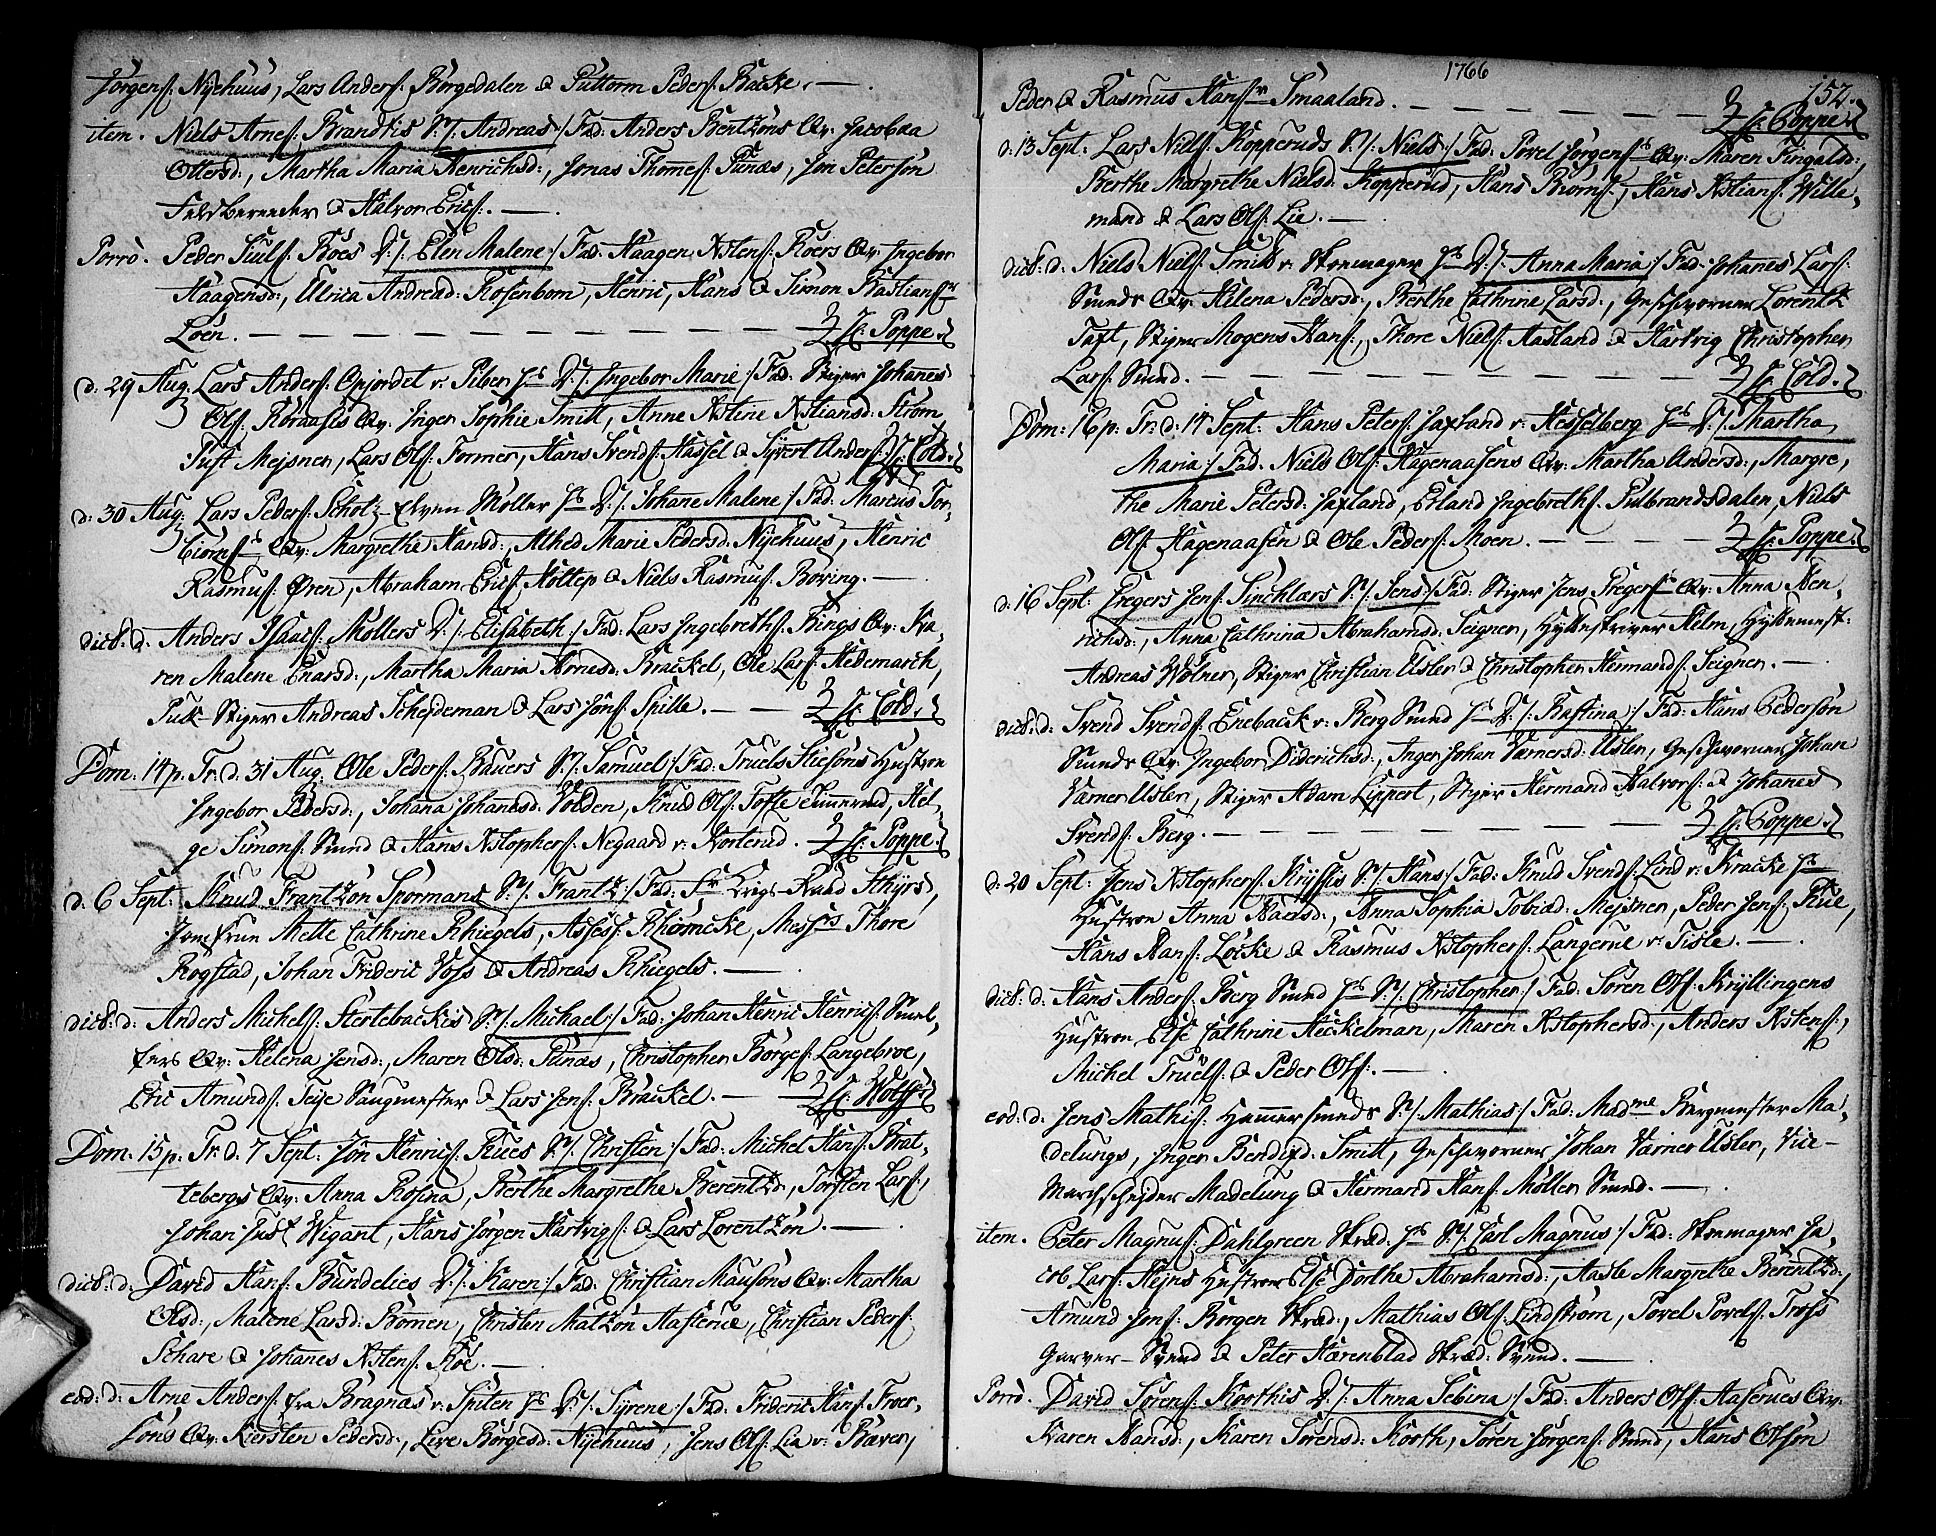 Jörgens: Nyehuus, Lars Anders: Börgedalen & Guttorm Peders: Backe. —
item. Niels Arnes: Brandtis S./. Andreas ./. Fad. Anders Bentzöns Qv. Jacobæa
Ottersd:, Martha Maria Henrichsd:, Jonas Thomes: Funæs, Jon Petersön
Feldbereeder & Halvor Erics: —
Porrò. Peder Juuls: Boes D./. Elen Malene ./. Fad. Haagen Xstens: Roers Qv. Ingebor
Haagensd:, Ulrica Andread: Rosenbom, Henric, Hans & Simon Bastians:
Loen. — H: Poppe.
d. 29 Aug. Lars Anders: Opjordet v. Piber H: D./. Ingebor Marie ./. Fad. Stiger Johanes
Ols: Röraasis Qv. Inger Sophie Smitt, Anne Xstene Xstiansd: Ström
Tuft Mejsner, Lars Ols: Former, Hans Svends: Hassel & Syvert Anders: H: Cold.
d: 30 Aug. Lars Peders: Scholtz Elven Möller H: D./. Johane Malene ./. Fad. Marcus Tor-
biörns: Qv. Margrethe Hansd:, Alhed Marie Pedersd: Nyehuus, Henric
Rasmus: Ören, Abraham Erics: Höltep & Niels Rasmus: Boving. —
dict: d. Anders Isaacs: Möllers D./. Elisabeth ./. Fad. Lars Ingebreths: Rings Qv. Ka-
ren Malene Enarsd:, Martha Maria Arnesd: Brackel, Ole Lars: Hedemarch,
Puk-Stiger Andreas Schejdeman & Lars Jöns: Spille. — H: Cold.
Dom. 14 p. Tr. d. 31 Aug. Ole Peders: Bauers S./. Samuel ./. Fad. Truels Stisöns Hustroe
Ingebor Pedersd:, Johana Johansd: Volden, Knud Ols: Tofte Tømmermd, Hel-
ge Simons: Smed & Hans Xstophers: Negaard v. Korterud. H: Poppe.
d. 6 Sept: Knud Frantzön Spormans S./. Frantz ./. Fad. Fr Krigs-Raad Sthyrs,
Jomfrue Mette Cathrine Rhiegels, Assess: Rhömcke, Messrs Thore
Rogstad, Johan Frideric Voss & Andreas Rhiegels. —
dict: d: Anders Michels: Stertebackis S./. Michael ./. Fad. Johan Henric Henrics: Smel-
fers Qv. Helena Jensd:, Maren Olsd: Funæs, Christopher Börges: Langebroe,
Eric Amunds: Teye Saugmester & Lars Jens: Brackel. — H: Wolff.
Dom. 15 p. Tr. d. 7 Sept: Jon Henrics: Rues S./. Christen ./. Fad. Michel Hans: Brat-
tebergs Qv. Anna Rosina, Berthe Margrethe Berentzd:, Torsten Lars:,
Johan Just Wigant, Hans Jörgen Hartvigs: & Lars Lorentzön. —
dict: d: David Hans: Bundelies D./. Karen ./. Fad. Christian Mausöns Qv. Martha
Olsd:, Malene Larsd: Bömen, Christen Matzön Aasterue, Christian Peders:
Schare & Johanes Xstens: Roe. —
eod: d: Arne Anders: fra Bragnæs v. Spiten H: D./. Syrene ./. Fad. Frideric Hans: Froer-
söns Qv. Kiersten Pedersd:, Live Börgesd: Nyehuus, Jens Ols: Lia v. Bæver,
1766
152.
Peder & Rasmus Hans: Smaaland. — H: Poppe.
d. 13 Sept: Lars Niels: Kopperuds S./. Niels ./. Fad. Povel Jörgens: Qv. Maren Fingalsd:,
Berthe Margrethe Nielsd: Kopperud, Hans Biörns:, Hans Xstians: Wille-
mand & Lars Ols: Lie. —
dict: d. Niels Niels: Smitt v. Skomager H: D./. Anna Maria ./. Fad. Johanes Lars:
Smeds Qv. Helena Pedersd:, Berthe Cathrine Larsd:, Geschworner Lorentz
Taft, Stiger Mogens Hans:, Thore Niels: Aasland & Hartvig Christopher
Lars: Smed. — H: Cold.
Dom: 16 p. Tr. d: 14 Sept. Hans Peters: Jaxland v. Hesselberg H: D./. Martha
Maria ./. Fad. Niels Ols: Hagenaasens Qv. Martha Andersd:, Margre-
the Marie Petersd: Jaxland, Erland Ingebreths: Gulbrandsdalen, Niels
Ols: Hagenaasen & Ole Peders: Moen. — H: Poppe.
d: 16 Sept: Gregers Jens: Sinchlærs S./. Jens ./. Fad. Stiger Jens Gregers: Qv. Anna Hen-
richsd:, Anna Cathrina Abrahamsd: Seigner, Hytteskriver Helm, Hyttemest:
Andreas Wölner, Stiger Christian Usler & Christopher Hermands: Seigner. —
dict: d: Svend Svends: Eneback v. Berg Smed H: D./. Bastina ./. Fad. Hans Pedersön
Smeds Qv. Ingebor Diderichsd:, Inger Johan Værnersd: Usler, Geschworner Johan
Værner Usler, Stiger Adam Lippert, Stiger Hermand Halvors: & Johanes
Svends: Berg. — H: Poppe.
d: 20 Sept: Jens Xstophers: Kryssis S./. Hans ./. Fad. Knud Svends: Lind v. Kracke H:
Hustroe Anna Aaelsd:, Anna Sophia Tobiæd: Mejsner, Peder Jens: Rue,
Hans Hans: Löcke & Rasmus Xstophers: Langerue v. Tisle. —
dict: d: Hans Anders: Berg Smed H: S./. Christopher ./. Fad. Sören Ols: Kryllingens
Hustroe Else Cathrine Heckelman, Maren Xstophersd:, Anders Xstens:,
Michel Truels: & Peder Ols: —
eod: d: Jens Mathis: Hammersmeds S./. Mathias ./. Fad. Madme Bærgmester Ma-
delungs, Inger Bendixd: Smitt, Geschworner Johan Værner Usler, Vice-
Marchschejder Madelung & Hermand Hans: Möller Smed. —
item. Peter Magnus: Dahlgreen Skræd. H: S./. Carl Magnus ./. Fad. Skomager Ja-
cob Lars: Hejns Hustroe Else Dorthe Abrahamsd:, Aasle Margrethe Berentzd:,
Amund Jons: Borgen Skræd:, Mathias Ols: Lindström, Povel Povels: Fross
Garver-Svend & Peter Hærenblad Skræd: Svend. —
Porrò. David Sörens: Korthis D./. Anna Sebina ./. Fad. Anders Ols: Aaserues Qv.
Karen Hansd:, Karen Sörensd: Korth, Sören Jörgens: Smed, Hans Olsön